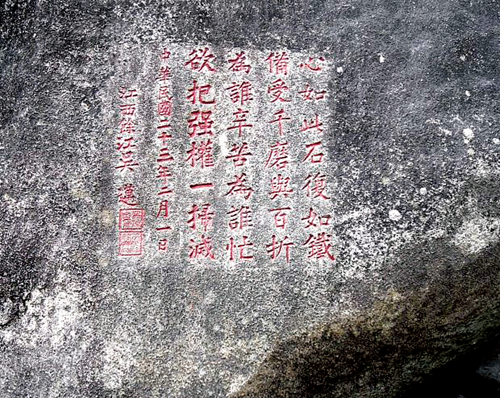 心如此石復如鐵
備受千磨與百折
為誰辛苦為誰忙
欲把强權一掃滅
中華民國二十三年二月一日
江西江吳